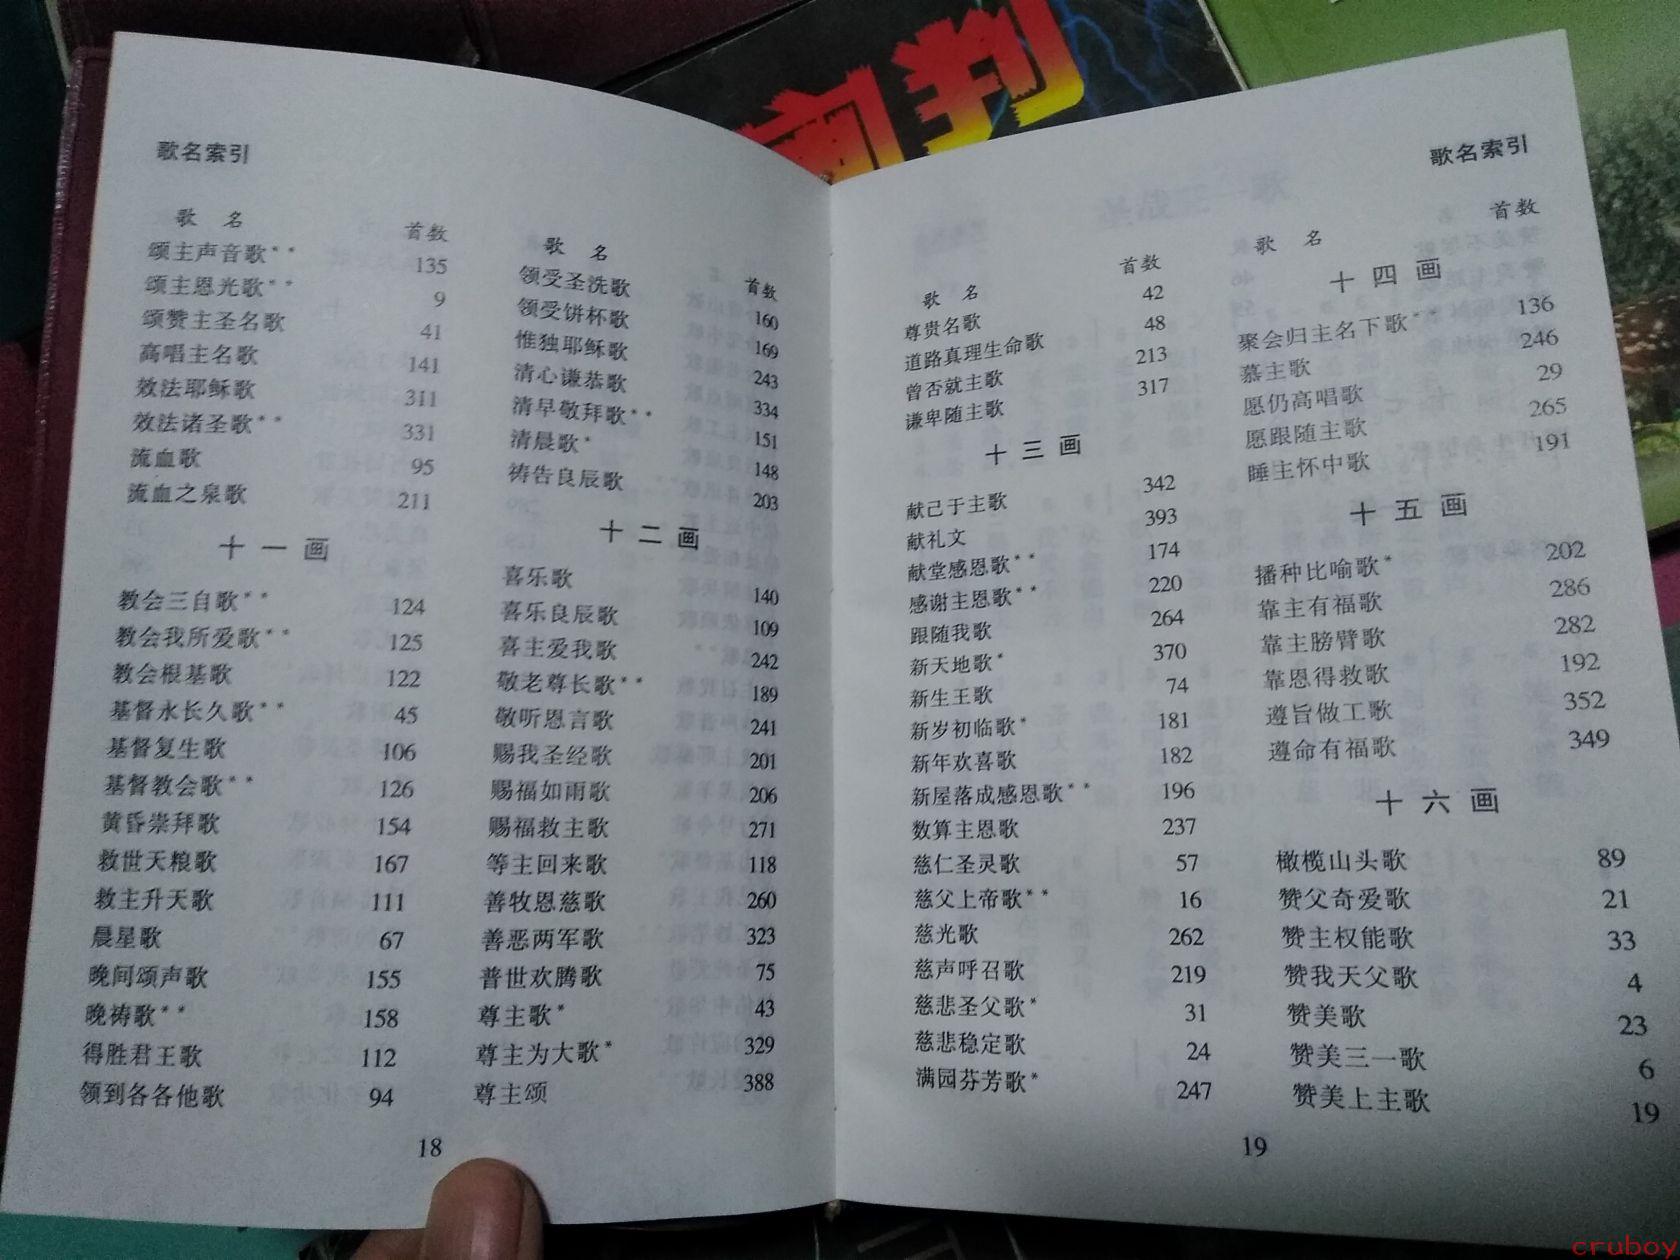 审判
歌名索引
歌 名 首数
颂主声音歌** 135
颂主恩光歌** 9
颂赞主圣名歌 41
高唱主名歌 141
效法耶稣歌 311
效法诸圣歌** 331
流血歌 95
流血之泉歌 211
十一画
教会三自歌** 124
教会我所爱歌** 125
教会根基歌 122
基督永长久歌** 45
基督复生歌 106
基督教会歌** 126
黄昏崇拜歌 154
救世天粮歌 167
救主升天歌 111
晨星歌 67
晚间颂声歌 155
晚祷歌** 158
得胜君王歌 112
领到各各他歌 94
歌 名 首数
领受圣洗歌 160
领受饼杯歌 169
惟独耶稣歌 243
清心谦恭歌 334
清早敬拜歌** 151
清晨歌* 148
祷告良辰歌 203
十二画
喜乐歌 140
喜乐良辰歌 109
喜主爱我歌 242
敬老尊长歌** 189
敬听恩言歌 241
赐我圣经歌 201
赐福如雨歌 206
赐福救主歌 271
等主回来歌 118
善牧恩慈歌 260
善恶两军歌 323
普世欢腾歌 75
尊主歌* 43
尊主为大歌* 329
尊主颂 388
18
歌名索引
歌 名 首数
尊贵名歌 42
道路真理生命歌 48
曾否就主歌 213
谦卑随主歌 317
十三画
献己于主歌 342
献礼文 393
献堂感恩歌** 174
感谢主恩歌** 220
跟随我歌 264
新天地歌* 370
新生王歌 74
新岁初临歌* 181
新年欢喜歌 182
新屋落成感恩歌** 196
数算主恩歌 237
慈仁圣灵歌 57
慈父上帝歌** 16
慈光歌 262
慈声呼召歌 219
慈悲圣父歌* 31
慈悲稳定歌 24
满园芬芳歌* 247
歌 名 首数
十四画
聚会归主名下歌** 136
慕主歌 246
愿仍高唱歌 29
愿跟随主歌 265
睡主怀中歌 191
十五画
播种比喻歌* 202
靠主有福歌 286
靠主膀臂歌 282
靠恩得救歌 192
遵旨做工歌 352
遵命有福歌 349
十六画
橄榄山头歌 89
赞父奇爱歌 21
赞主权能歌 33
赞我天父歌 4
赞美歌 23
赞美三一歌 6
赞美上主歌 19
19
cruboy